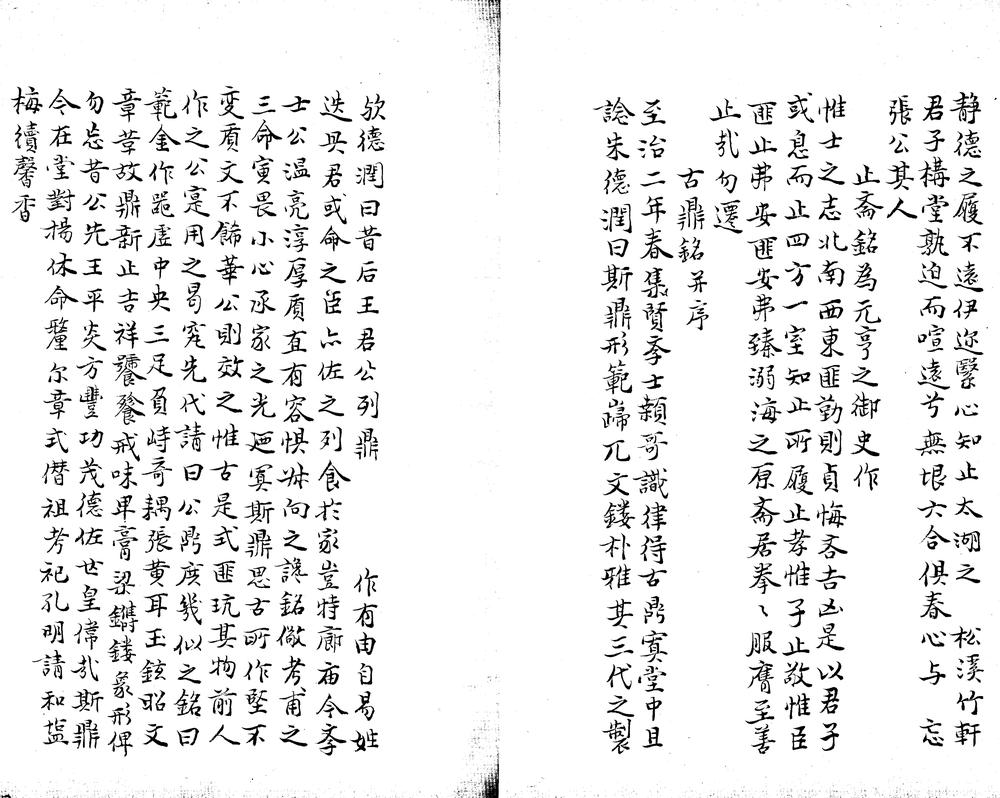 静德之履不遠伊迩繄心知止太湖之　松溪竹軒
君子構堂孰迫而喧遠兮無垠六合俱春心与　忘
張公其人
止斋銘為元亨之御史作
惟士之志北南西東匪勤則貞悔吝吉凶是以君子
或息而止四方一室知止所履止孝惟子止敬惟臣
匪止弗安匪安弗臻溺海之原斋居拳〻服膺至善
止㢤勿遷
古鼎銘并序
至治二年春集賢孝士顡哥識律得古鼎寘堂中且
諗朱德潤曰斯鼎形範巋兀文鏤朴雅其三代之製
欤德潤曰昔后王君公列鼎　作有由自易姓
迭興君或命之臣亦佐之列食於家豈特廊庙今孝
士公温亮淳厚质直有容惧歘向之讒銘倣考甫之
三命寅畏小心承家之光廼寘斯鼎思古所作堅不
变质文不飾華公則效之惟古是式匪玩其物前人
作之公寔用之曷究先代請曰公鼎庶幾似之銘曰
範金作噐虚中央三足負峙奇耦張黄耳玉鉉昭文
章革故鼎新止吉祥饕餮戒味卑膏梁鐫鏤象形俾
勿忘昔公先王平炎方豐功茂德佐世皇偉㢤斯鼎
今在堂對揚休命釐尔章式僭祖考祀孔明請和盐
梅續馨香